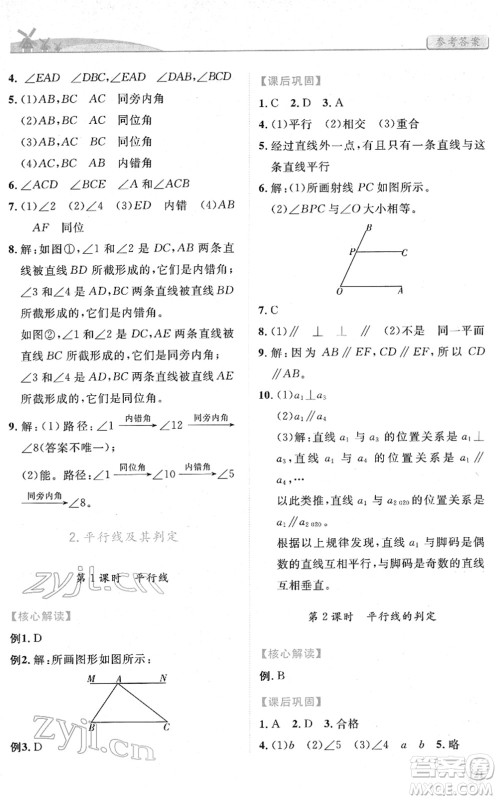 参考答案
4. ∠EAD ∠DBC,∠EAD ∠DBC,∠EAD
5. (1)AB,BC AC 同旁内角
(2)AB,AC BC 同位角
(3)AB,BC AC 同位角
(4)AC,BC AB 内错角
6. ∠ACD ∠BCD ∠A和∠ACD
7. (1)∠2 (2)∠4 (3)BD 内错 (4)AB
AF 同位
8. 解:如图①,∠1 和∠2 是 DC,AB 两条直
线被直线 BD 所截形成的,它们是内错角;
∠3 和∠4 是 AD,BC 两条直线被直线 BD
所截形成的,它们是内错角.
如图②,∠1 和∠2 是 DC,AB 两条直线被
直线 BC 所截形成的,它们是同旁内角;
∠3 和∠4 是 AD,BC 两条直线被直线 AE
所截形成的,它们是同位角.
9. 解:(1)路径:∠1 内错角 ∠12 同旁内角
∠8(答案不唯一);
(2)能。路径:∠1 同位角 ∠10 内错角 ∠5
同旁内角 ∠8。
2. 平行线及其判定
第 1 课时 平行线
【核心解读】
例1. D
例2. 解:所画图形如图所示.
M A N
B C
例3. D
【课后巩固】
1. C 2. D 3. A
4. (1)平行 (2)相交 (3)重合
5. 经过直线外一点,有且只有一条直线与这
条直线平行
6. 解:(1)所画射线 PC 如图所示。
(2)∠BPC 与∠O 大小相等。
B
P C
O A
7. C
8. (1)∥ ⊥ ⊥ ∥ (2)不是 同一平面
9. 解:因为 AB∥EF,CD∥EF,所以 CD
∥AB。
10. (1)a₁⊥a₃
(2)a₁∥a₄
(3)解:直线 a₁ 与 a₃ 的位置关系是 a₁
⊥a₃,直线 a₁ 与 a₄ 的位置关系是 a₁
∥a₄,…
以此类推,直线 a₁ 与 a₂₀₂₀ 的位置关系是
a₁∥a₂₀₂₀。
(4)由以上规律发现,与脚码是奇数的直
线互相垂直,与脚码是偶数的直线互相平行.
第 2 课时 平行线的判定
【核心解读】
例. B
【课后巩固】
1. A 2. D 3. 合格
4. (1)b (2)∠5 ∠4 a b 5. 略
zyjl.cn
答案圈